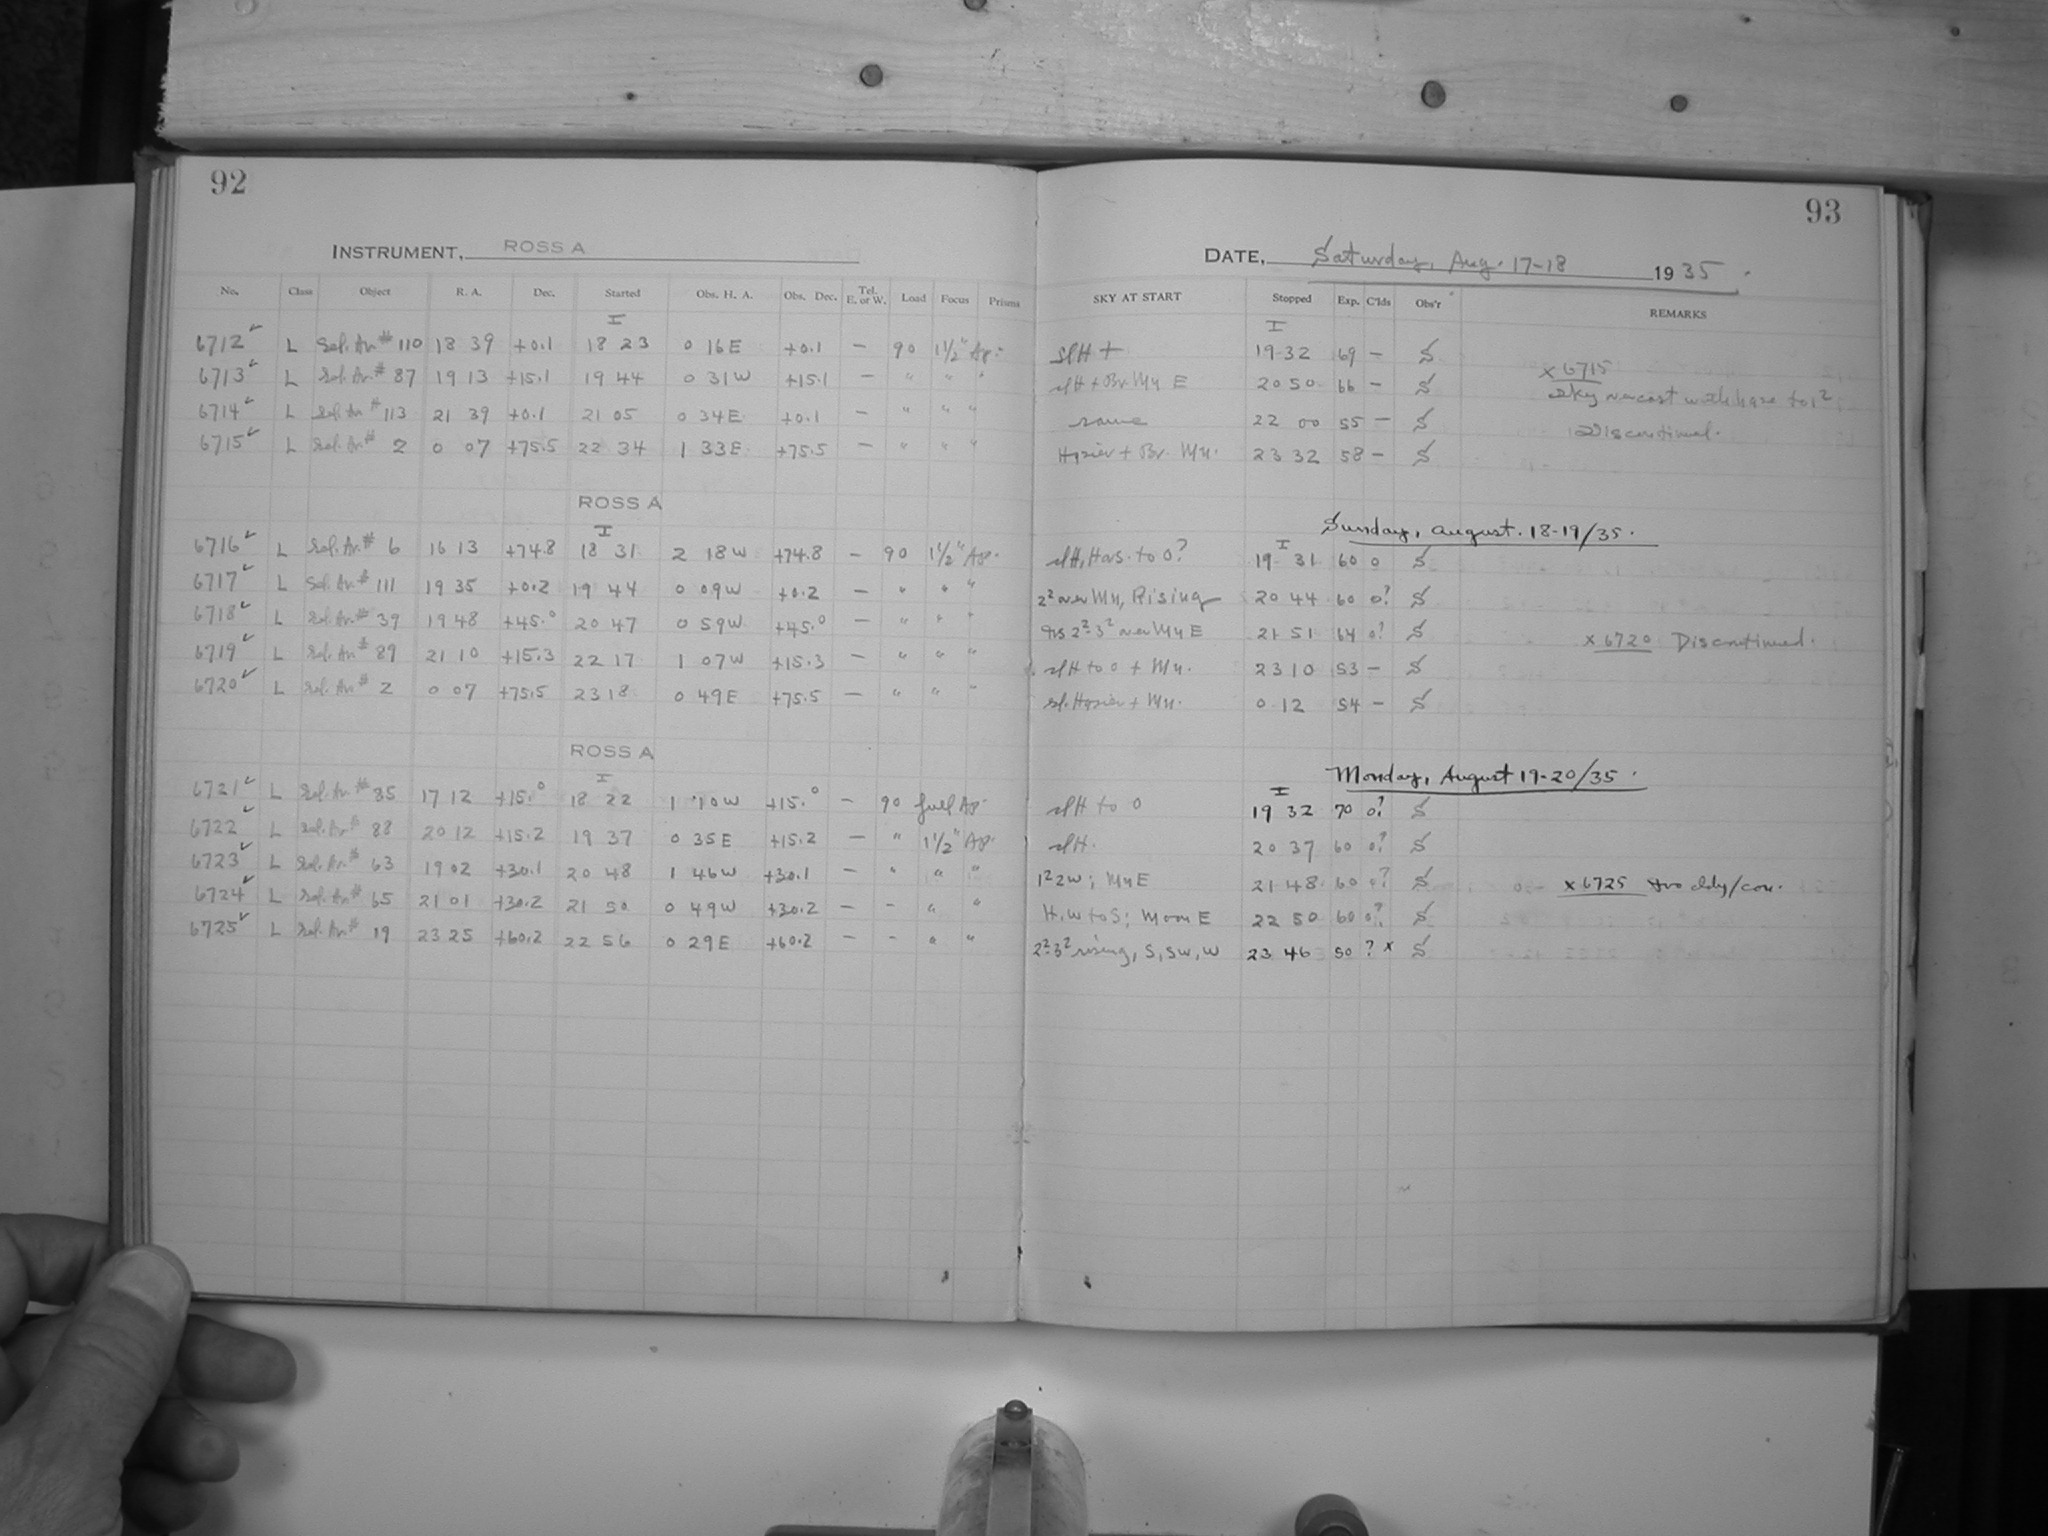 92
93
INSTRUMENT, ROSS A
DATE, Saturday, Aug. 17-18 1935.
No. Class Object R. A. Dec. Started Obs. H. A. Obs. Dec. Tel. E. or W. Load Focus Prisms SKY AT START Stopped Exp. C'lds Obs'r REMARKS
I I
6712 ✓ L Sel. Ar. # 110 18 39 +0.1 18 23 0 16 E +0.1 — 90 1 1/2" Ap. slH + 19 32 69 — S
6713 ✓ L Sel. Ar. # 87 19 13 +15.1 19 44 0 31 W +15.1 — " " " slH + Br. Mn E 20 50 66 — S x 6715
6714 ✓ L Sel. Ar. # 113 21 39 +0.1 21 05 0 34 E +0.1 — " " " same 22 00 55 — S Sky overcast with haze to 1²
6715 ✓ L Sel. Ar. # 2 0 07 +75.5 22 34 1 33 E +75.5 — " " " Hazier + Br. Mn. 23 32 58 — S Discontinued.
ROSS A
Sunday, August. 18-19/35.
I I
6716 ✓ L Sel. Ar. # 6 16 13 +74.8 18 31 2 18 W +74.8 — 90 1 1/2" Ap. slH, Hors. to 0? 19 31 60 0 S
6717 ✓ L Sel. Ar. # 111 19 35 +0.2 19 44 0 09 W +0.2 — " " " 2² over Mn, Rising 20 44 60 0? S
6718 ✓ L Sel. Ar. # 39 19 48 +45.0 20 47 0 59 W +45.0 — " " " 2²-3² over Mn E 21 51 64 0? S x 6720 Discontinued.
6719 ✓ L Sel. Ar. # 89 21 10 +15.3 22 17 1 07 W +15.3 — " " " slH to 0 + Mn. 23 10 53 — S
6720 ✓ L Sel. Ar. # 2 0 07 +75.5 23 18 0 49 E +75.5 — " " " sl. Hazier + Mn. 0 12 54 — S
ROSS A
Monday, August 19-20/35.
I I
6721 ✓ L Sel. Ar. # 85 17 12 +15.0 18 22 1 10 W +15.0 — 90 full Ap. slH to 0 19 32 70 0? S
6722 ✓ L Sel. Ar. # 88 20 12 +15.2 19 37 0 35 E +15.2 — " 1 1/2" Ap. slH. 20 37 60 0? S
6723 ✓ L Sel. Ar. # 63 19 02 +30.1 20 48 1 46 W +30.1 — " " " 1² 2 W; Mn E 21 48 60 0? S x 6725 too cldy/con.
6724 ✓ L Sel. Ar. # 65 21 01 +30.2 21 50 0 49 W +30.2 — " " " H. W to S; Moon E 22 50 60 0? S
6725 ✓ L Sel. Ar. # 19 23 25 +60.2 22 56 0 29 E +60.2 — " " " 2²-3² rising, S, SW, W 23 46 50 ? x S